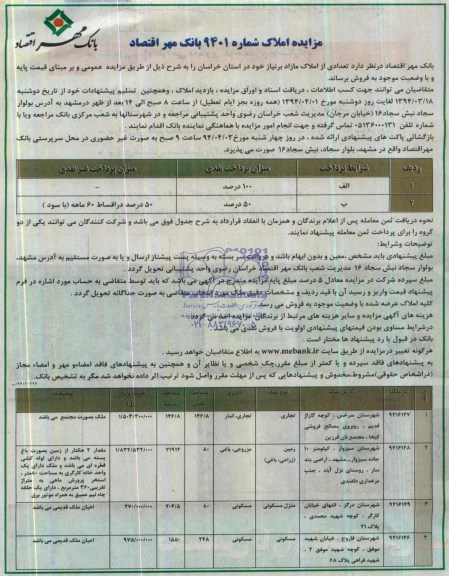 بانک مهر اقتصاد
مزایده املاک شماره ۹۴۰۱ بانک مهر اقتصاد
بانک مهر اقتصاد درنظر دارد تعدادی از املاک مازاد برنیاز خود در استان خراسان را به شرح ذیل از طریق مزایده عمومی و بر مبنای قیمت پایه
و با وضعیت موجود به فروش برساند.
متقاضیان می توانند جهت کسب اطلاعات ، دریافت اسناد و اوراق مزایده ، بازدید املاک ، وهمچنین تسلیم پیشنهادات خود از تاریخ دوشنبه
۱۳۹۴/۰۳/۱۸ لغایت روز دوشنبه مورخ ۱۳۹۴/۰۴/۰۱ (همه روزه بجز ایام تعطیل) از ساعت ۸ صبح الی ۱۴ بعد از ظهر درمشهد به آدرس بولوار
سجاد نبش سجاد۱۶ (خیابان مرجان) مدیریت شعب خراسان رضوی واحد پشتیبانی مراجعه و در شهرستانها به شعب مرکزی بانک مراجعه ویا با
شماره تلفن ۰۵۱۳۶۰۰۰۱۳۱ تماس گرفته و جهت انجام امور مزایده با هماهنگی نماینده بانک اقدام نمایند .
بازگشائی پاکت های پیشنهادی ارائه شده ، در روز چهار شنبه مورخ ۹۴/۰۴/۰۳ ساعت ۹ صبح به صورت غیر حضوری در محل سرپرستی بانک
مهراقتصاد واقع در مشهد، بلوار سجاد، نبش سجاد۱۶ صورت می پذیرد.
ردیف شرایط پرداخت میزان پرداخت نقدی میزان پرداخت غیر نقدی
۱ الف ۱۰۰ درصد -
۲ ب ۵۰ درصد ۵۰ درصد دراقساط ۶۰ ماهه (با سود )
نحوه دریافت ثمن معامله پس از اعلام برندگان و همزمان با انعقاد قرارداد به شرح جدول فوق می باشد و شرکت کنندگان می توانند یکی از دو
گروه را برای پرداخت ثمن معامله پیشنهاد نمایند.
توضیحات وشرایط:
مبلغ پیشنهادی باید مشخص ،معین و بدون ابهام باشد و در پاکت سر بسته به وسیله پست پیشتاز ارسال و یا به صورت مستقیم به آدرس مشهد،
بولوار سجاد نبش سجاد ۱۶ مدیریت شعب بانک مهر اقتصاد خراسان رضوی واحد پشتیبانی تحویل گردد .
مبلغ سپرده شرکت در مزایده معادل ۵ درصد مبلغ پایه مزایده مندرج در آگهی می باشد که باید توسط متقاضی به حساب مورد اشاره در فرم
پیشنهاد قیمت واریز و رسید آن با قید ردیف و مشخصات دقیق ملک مورد انتخاب متقاضی به صورت جداگانه تحویل گردد .
کلیه املاک عرضه شده با وضعیت موجود به فروش می رسد.
هزینه های آگهی مزایده و سایر هزینه های مرتبط از برندگان مزایده اخذ می گردد.
درشرایط مساوی بودن قیمتهای پیشنهادی اولویت با فروش نقدی می باشد.
بانک در قبول یا رد پیشنهاد ها مختار است .
هرگونه تغییر درمزایده از طریق سایت www.mebank.ir به اطلاع متقاضیان خواهد رسید .
به پیشنهادهای فاقد سپرده و یا کمتر از مبلغ مقرر،چک شخصی و یا نظایر آن و همچنین به پیشنهادهای فاقد امضاءو مهر و امضاء مجاز
(دراشخاص حقوقی)مشروط،مخدوش و پیشنهادهایی که پس از مهلت مقرر واصل شود ترتیب اثر داده نخواهد شد مگر به تشخیص بانک.
۱ ۹۲۱۶۱۲۷ شهرستان سرخس ، کوچه گاراژ قدیم ، روبروی مصالح فروشی کیخا ، مجتمع نان فرزین تجاری تجاری، انبار ۱۴۶۱۸ ۱۴۶۱۸ ۱/۵۰۳/۳۰۰/۰۰۰ ملک بصورت مجتمع می باشد
۲ ۹۲۱۶۱۲۸ شهرستان سبزوار ، کیلومتر ۱۰ جاده سبزوار، مشهد ، اراضی بند سار ، روستای نزل آباد ، جنب مرغداری دلقندی زمین (زراعی، باغی) مزروعی، باغی ۸۰ ۷۱۹۱۲ ۱/۸۳۴/۵۳۲/۰۰۰ مقدار ۷ هکتار از زمین بصورت باغ پسته می باشد و دارای لوله کشی قطره ای می باشد و ملک دارای یک واحد خانه کارگری به مساحت ۸۰متر ، استخر پرورش ماهی به متراژ تقریبی ۳۶۰ مترمربع ، دارای یک حلقه چاه نیم عمیق به همراه موتور برق
۳ ۹۲۱۶۱۳۹ شهرستان درگز ، انتهای خیابان کارگر ، کوچه شهید محمدی ، پلاک ۲۱ منزل مسکونی مسکونی ۸۰ ۲۰۴/۵ ۲۷۰/۰۰۰/۰۰۰ اعیان ملک قدیمی می باشد
۴ ۹۲۱۶۱۴۶ شهرستان فاروج ، خیابان شهید موفق ، کوچه شهید موفق ۴ ، شهید فراهی پلاک ۶۸ مسکونی مسکونی ۲۴۸ ۱۵۵۰ ۹۷۵/۰۰۰/۰۰۰ اعیان ملک قدیمی می باشد